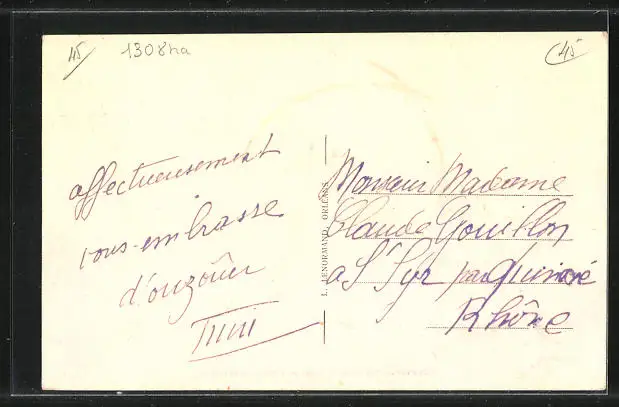 45
1308ha
45
affectueusement
vous embrasse
d'ouzouer
L. LENORMAND, ORLÉANS
Monsieur Madame
Claude Gouillon
a St Cyr par Quincié
Rhône